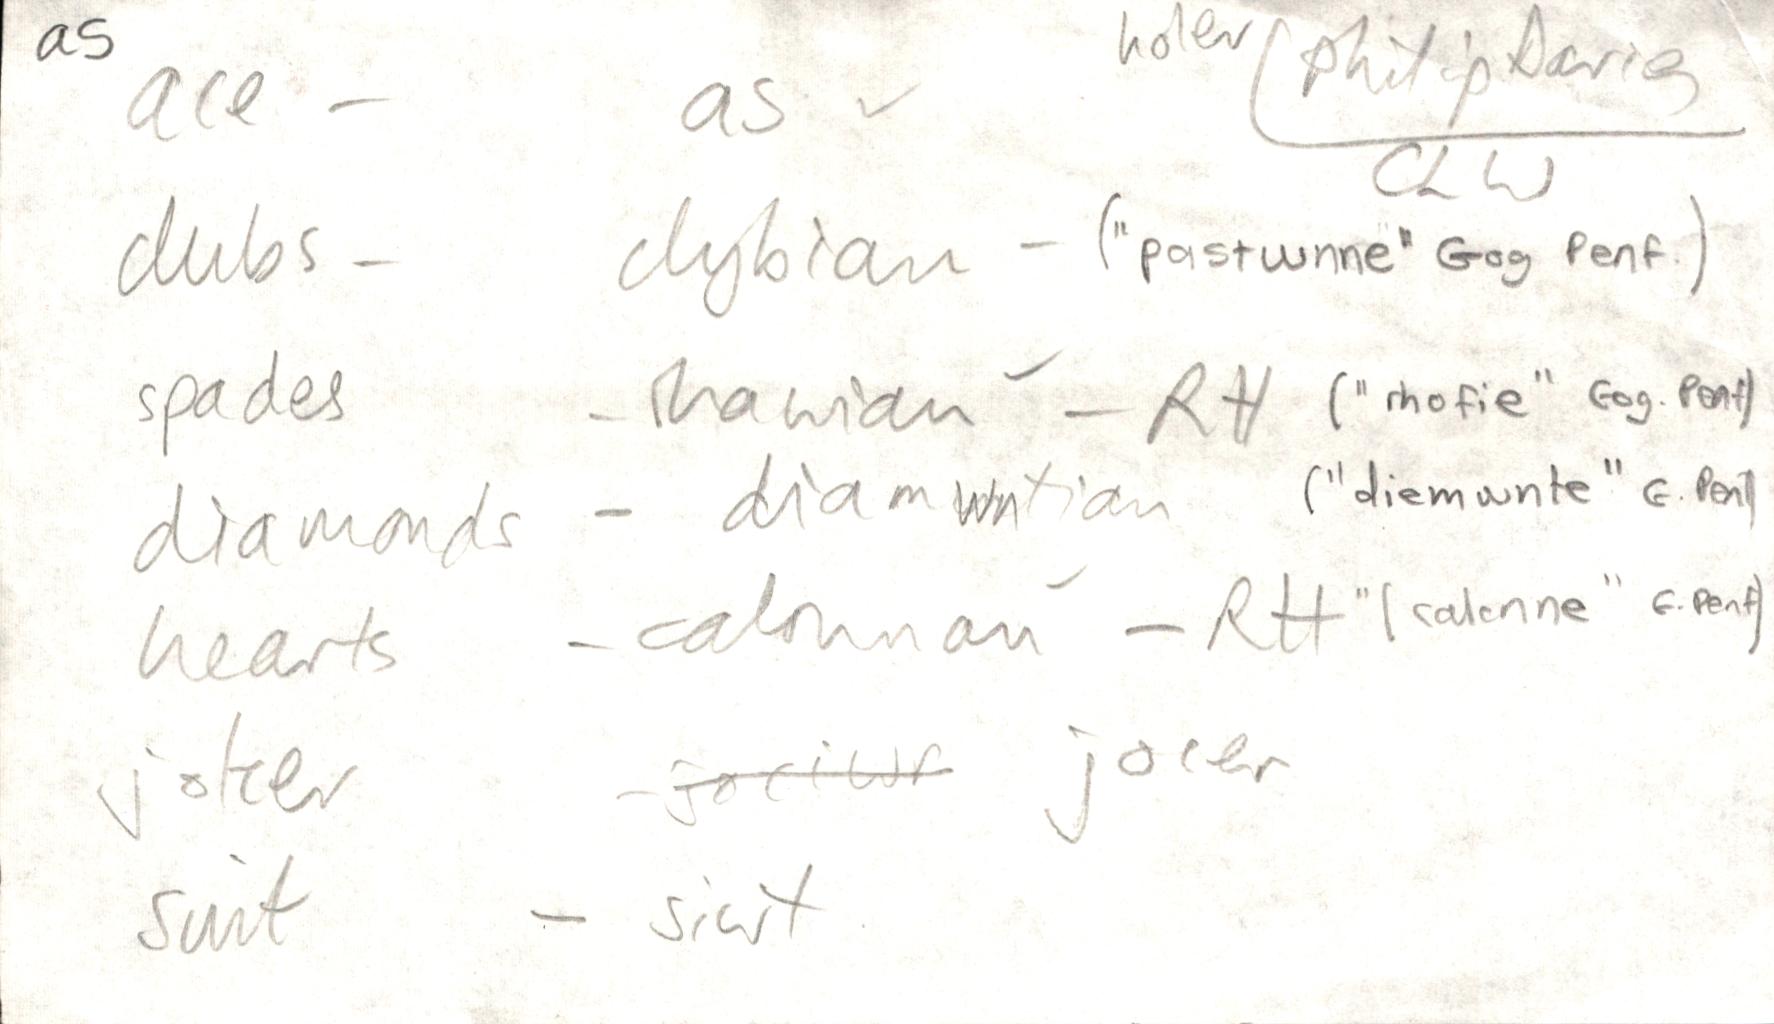 as
ace - as ✓ holer (Philip Davies
CLW
clubs - clybian - ("pastwnne" Gog Penf.)
spades - rhawiau ✓ - RH ("rhofie" Gog. Penf)
diamonds - diamwntiau ("diemwnte" G. Penf)
hearts - calonnau ✓ - RH "(calonne" G. Penf)
joker - jociwr jocer
suit - siwt